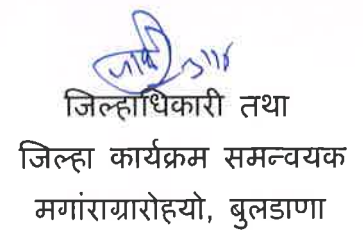 जिल्हाधिकारी तथा
जिल्हा कार्यक्रम समन्वयक
मगांराग्रारोहयो, बुलडाणा